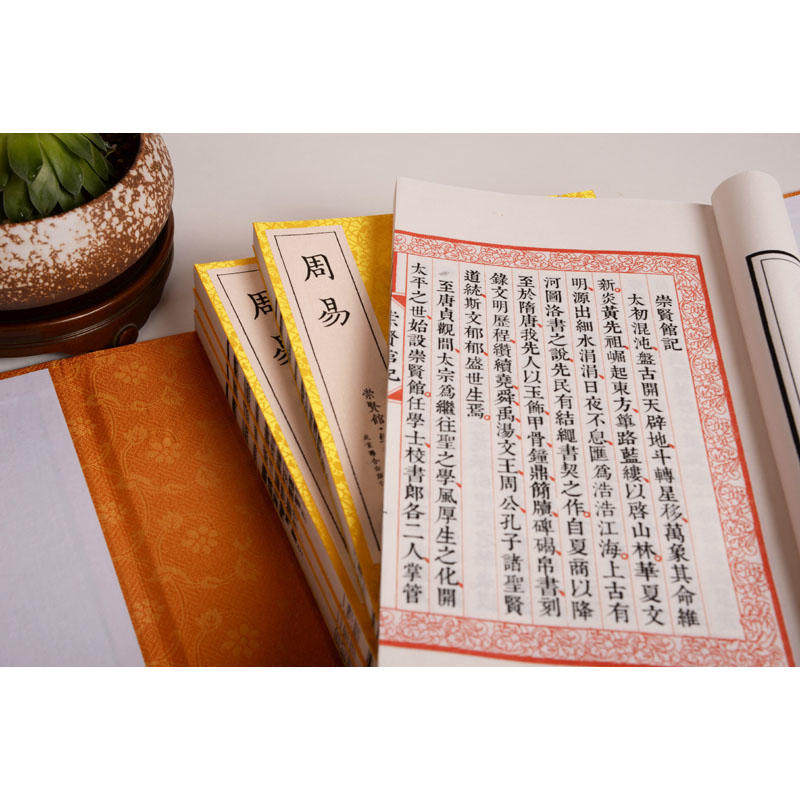 崇賢館記
太初混沌盤古開天辟地斗轉星移萬象其命維
新炎黃先祖崛起東方篳路藍縷以啓山林華夏文
明源出細水涓涓日夜不息匯爲浩浩江海上古有
河圖洛書之說先民有結繩書契之作自夏商以降
至於隋唐我先人以玉飾甲骨鐘鼎簡牘碑碣帛書刻
錄文明歷程纘續堯舜禹湯文王周公孔子諸聖賢
道統斯文郁郁盛世生焉
至唐貞觀間太宗爲繼往聖之學風厚生之化開
太平之世始設崇賢館任學士校書郎各二人掌管
崇賢館記
周易
崇賢館
周易